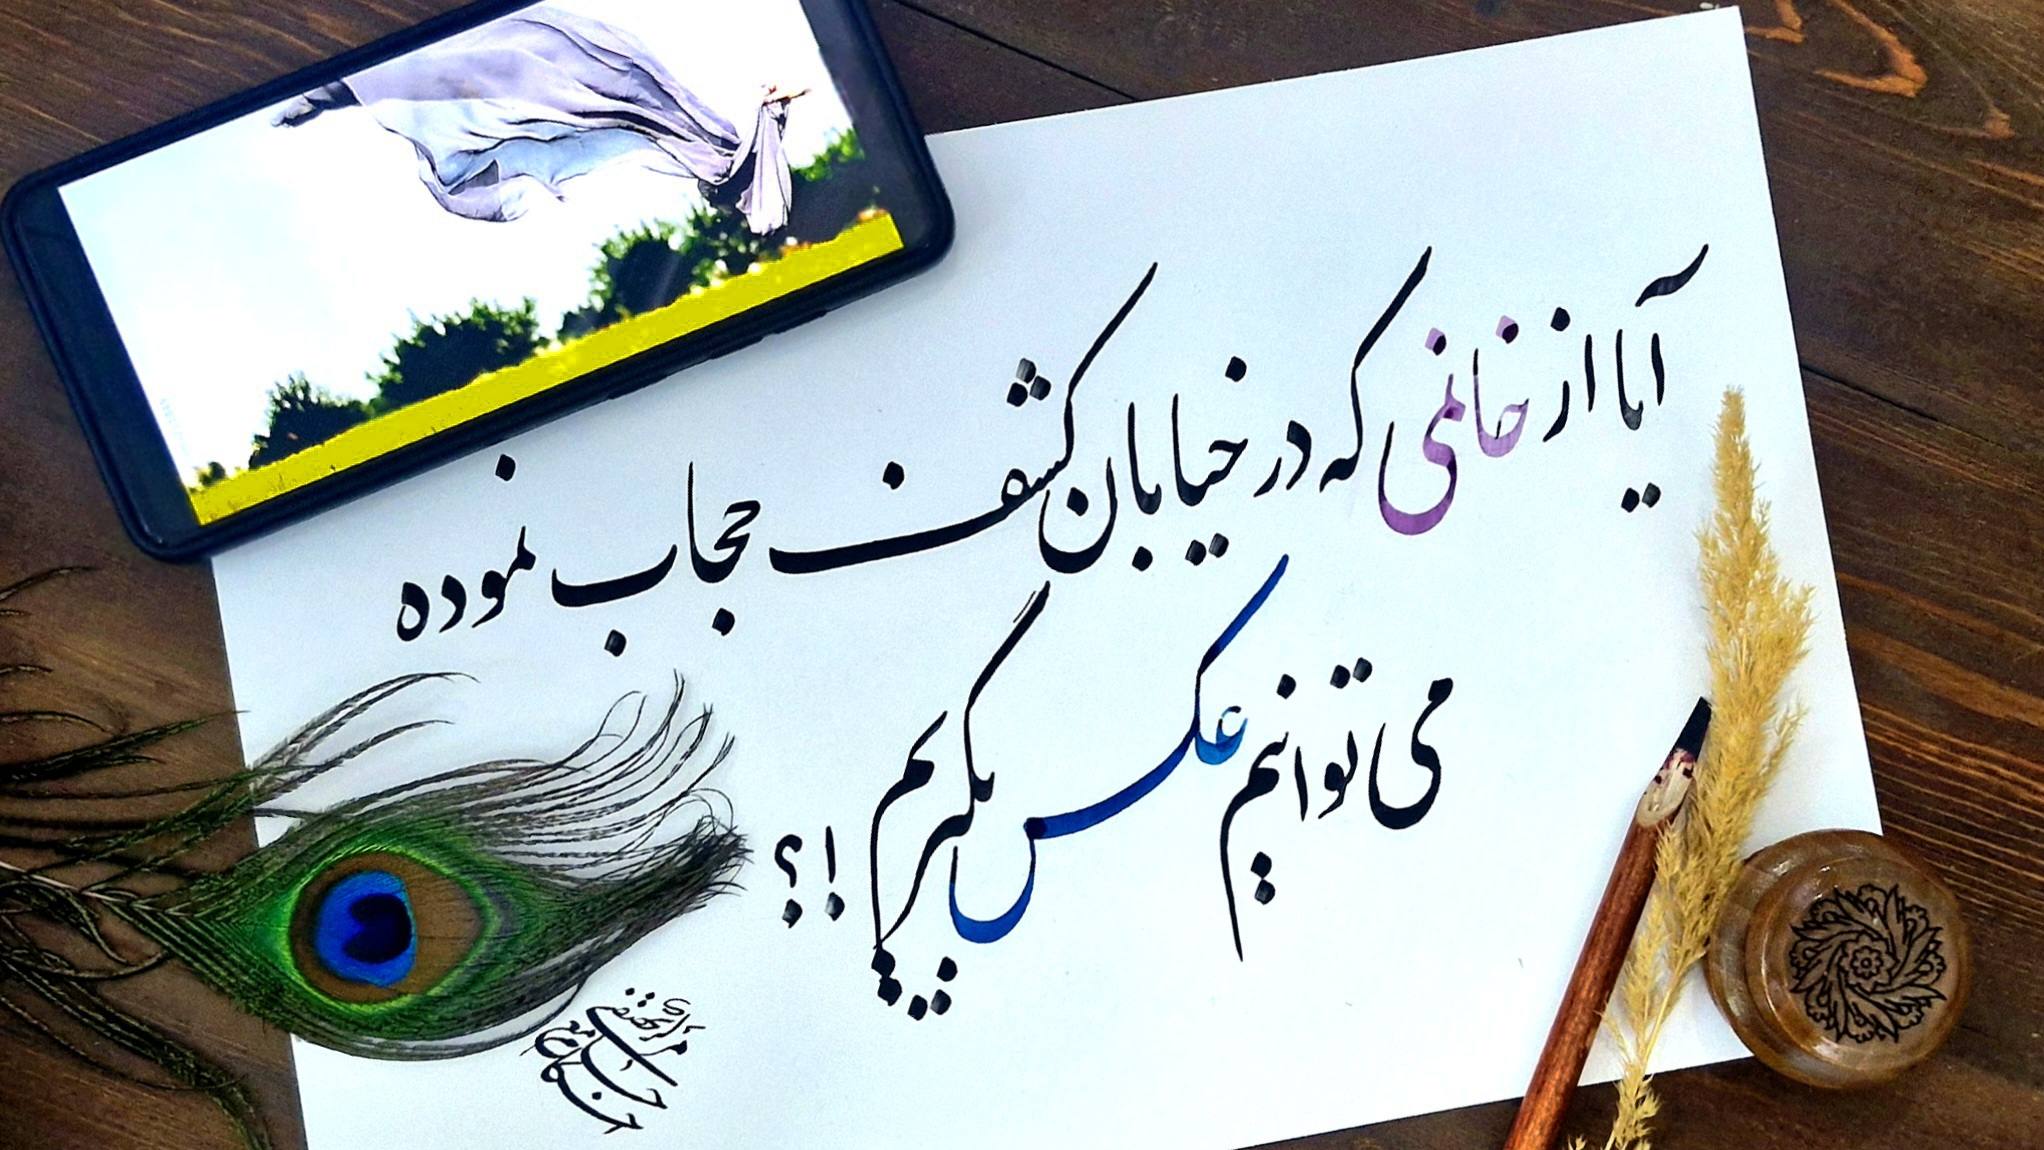 آیا از خانمی که در خیابان کشف حجاب نموده
می توانیم عکس بگیریم !؟